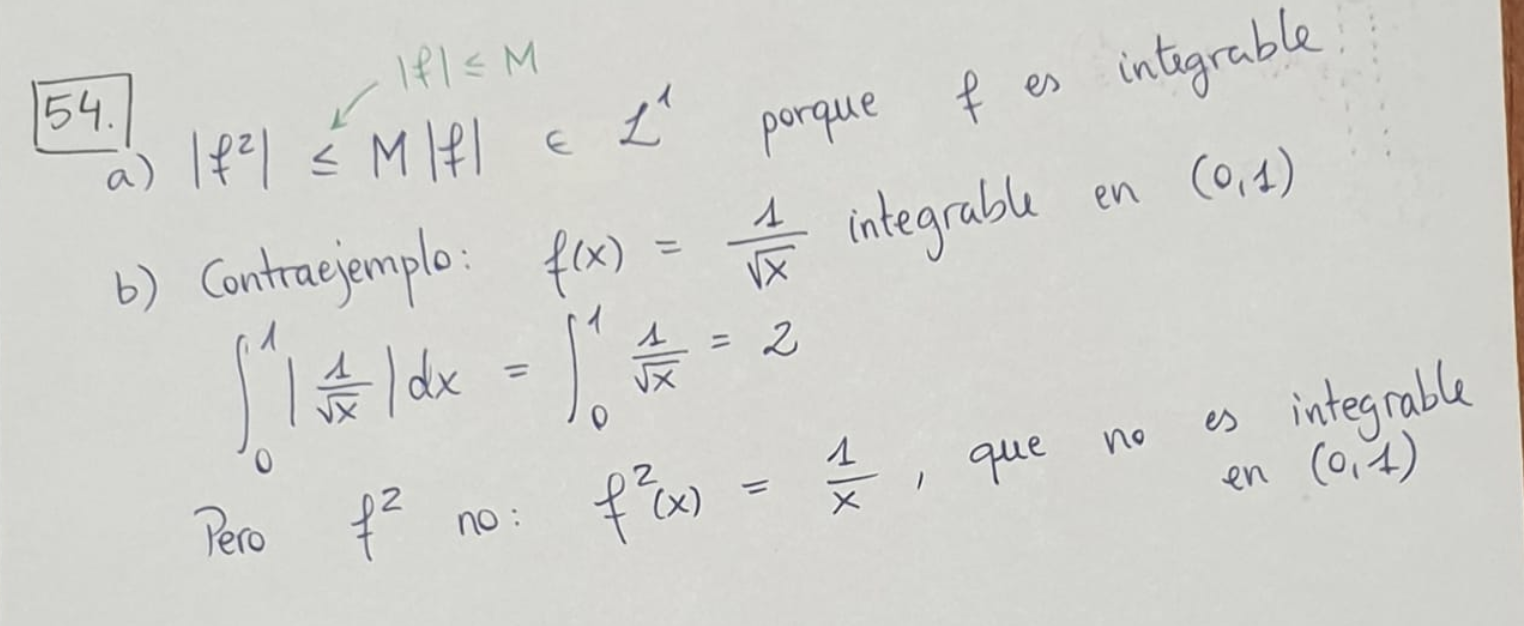 |f| ≤ M
54.
a) |f²| ≤ M |f| ∈ L¹ porque f es integrable
b) Contraejemplo: f(x) = 1/√x integrable en (0,1)
∫₀¹ |1/√x| dx = ∫₀¹ 1/√x = 2
Pero f² no: f²(x) = 1/x , que no es integrable
en (0,1)